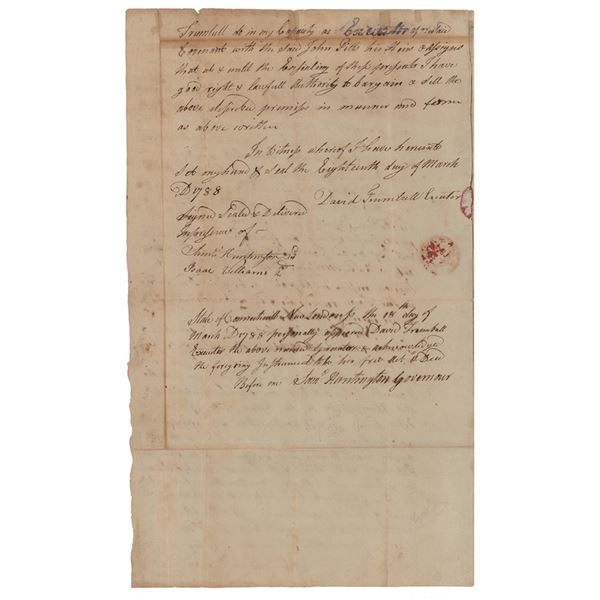 Trumbull do in my Capacity as Executor aforesaid
Covenant with the said John Gill his Heirs & Assigns
that at & until the Ensealing of these presents I have
good right & lawfull Authority to bargain & sell the
above discribed premises in manner and form
as above written
In Witness whereof I have hereunto
set my hand & Seal the Eighteenth day of March
D 1788
David Trumbull Exutor
Signed Sealed & Delivered
In presence of
Saml. Huntington
Isaac Williams 2d
State of Connecticutt New London ss the 18th day of
March D 1788 personally appeared David Trumbull
Executor the above named Grantor & acknowledged
the foregoing Instrument to be his free Act & Deed
Before me Saml. Huntington Governour